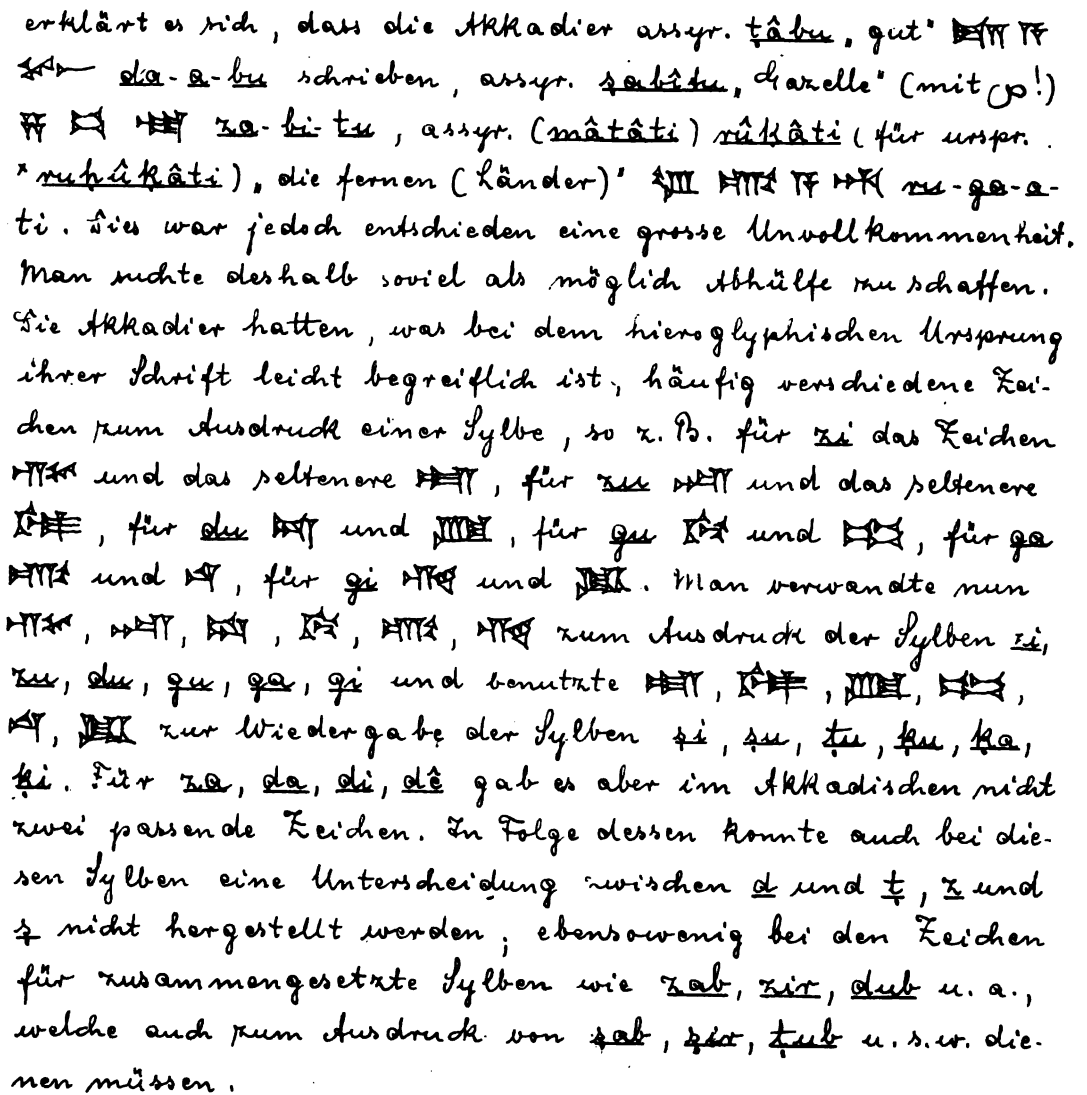 erklärt es sich, dass die Akkadier assyr. ṭâbu „gut“ 𒁕 𒀀
𒁍 da-a-bu schrieben, assyr. ṣabîtu „Gazelle“ (mit ص!)
𒍝 𒁉 𒌅 za-bi-tu, assyr. (mâtâti) rûḳâti (für urspr.
*ruḥûḳâti) „die fernen (Länder)“ 𒊒 𒂵 𒀀 𒋾 ru-ga-a-
ti. Dies war jedoch entschieden eine grosse Unvollkommenheit.
Man suchte deshalb soviel als möglich Abhülfe zu schaffen.
Die Akkadier hatten, was bei dem hieroglyphischen Ursprung
ihrer Schrift leicht begreiflich ist, häufig verschiedene Zei-
chen zum Ausdruck einer Sylbe, so z. B. für zi das Zeichen
𒍣 und das seltenere 𒍢, für zu 𒍪 und das seltenere
𒍮, für du 𒁺 und 𒂅, für gu 𒄖 und 𒄣, für ga
𒂵 und 𒋡, für gi 𒄀 und 𒆥. Man verwandte nun
𒍣, 𒍪, 𒁺, 𒄖, 𒂵, 𒄀 zum Ausdruck der Sylben zi,
zu, du, gu, ga, gi und benutzte 𒍢, 𒍮, 𒂅, 𒄣,
𒋡, 𒆥 zur Wiedergabe der Sylben ṣi, ṣu, ṭu, ḳu, ḳa,
ḳi. Für za, da, di, dê gab es aber im Akkadischen nicht
zwei passende Zeichen. In Folge dessen konnte auch bei die-
sen Sylben eine Unterscheidung zwischen d und ṭ, z und
ṣ nicht hergestellt werden; ebensowenig bei den Zeichen
für zusammengesetzte Sylben wie zab, zir, dub u. a.,
welche auch zum Ausdruck von ṣab, ṣir, ṭub u. s. w. die-
nen müssen.